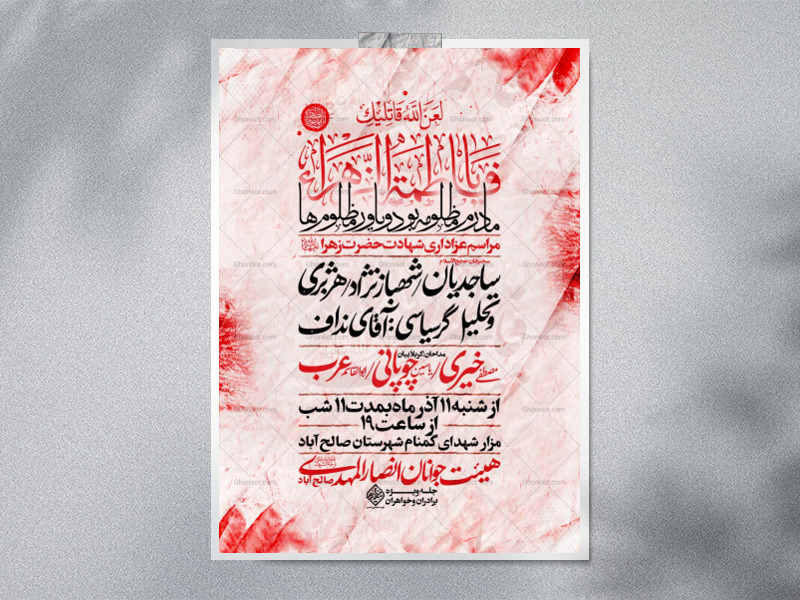 لعن الله قاتلیک
یا فاطمة الزهراء
مادرم مظلومه بود و یاور مظلوم‌ها
مراسم عزاداری شهادت حضرت زهرا
سخنرانان: حجج الاسلام
ساجدیان/شهبازنژاد/هژبری
و تحلیل گر سیاسی: آقای نداف
مداحان: کربلاییان
مصطفی خیری/یاسین چوپانی/ابوالقاسم عرب
از شنبه ۱۱ آذر ماه بمدت ۱۱ شب
از ساعت ۱۹
مزار شهدای گمنام شهرستان صالح آباد
هیئت جوانان انصار المهدی صالح آباد
جلسه ویژه
برادران و خواهران
Ghonoot.com